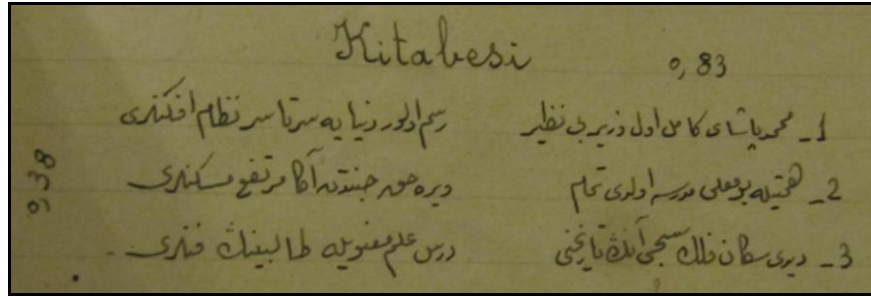 Kitabesi
0,83
1_ محمد پاشای کامل اول وزیر بی نظیر رسم اولور دنیایه سرتاسر نظام افکنری
2_ همتیله بو معلی مدرسه اولدی تمام ویره حق جنتدن آکا مرتفع مسکنری
3_ دیدی سکان فلک آنك تاریخنی درس علم معنویله طالبینك فنری
938